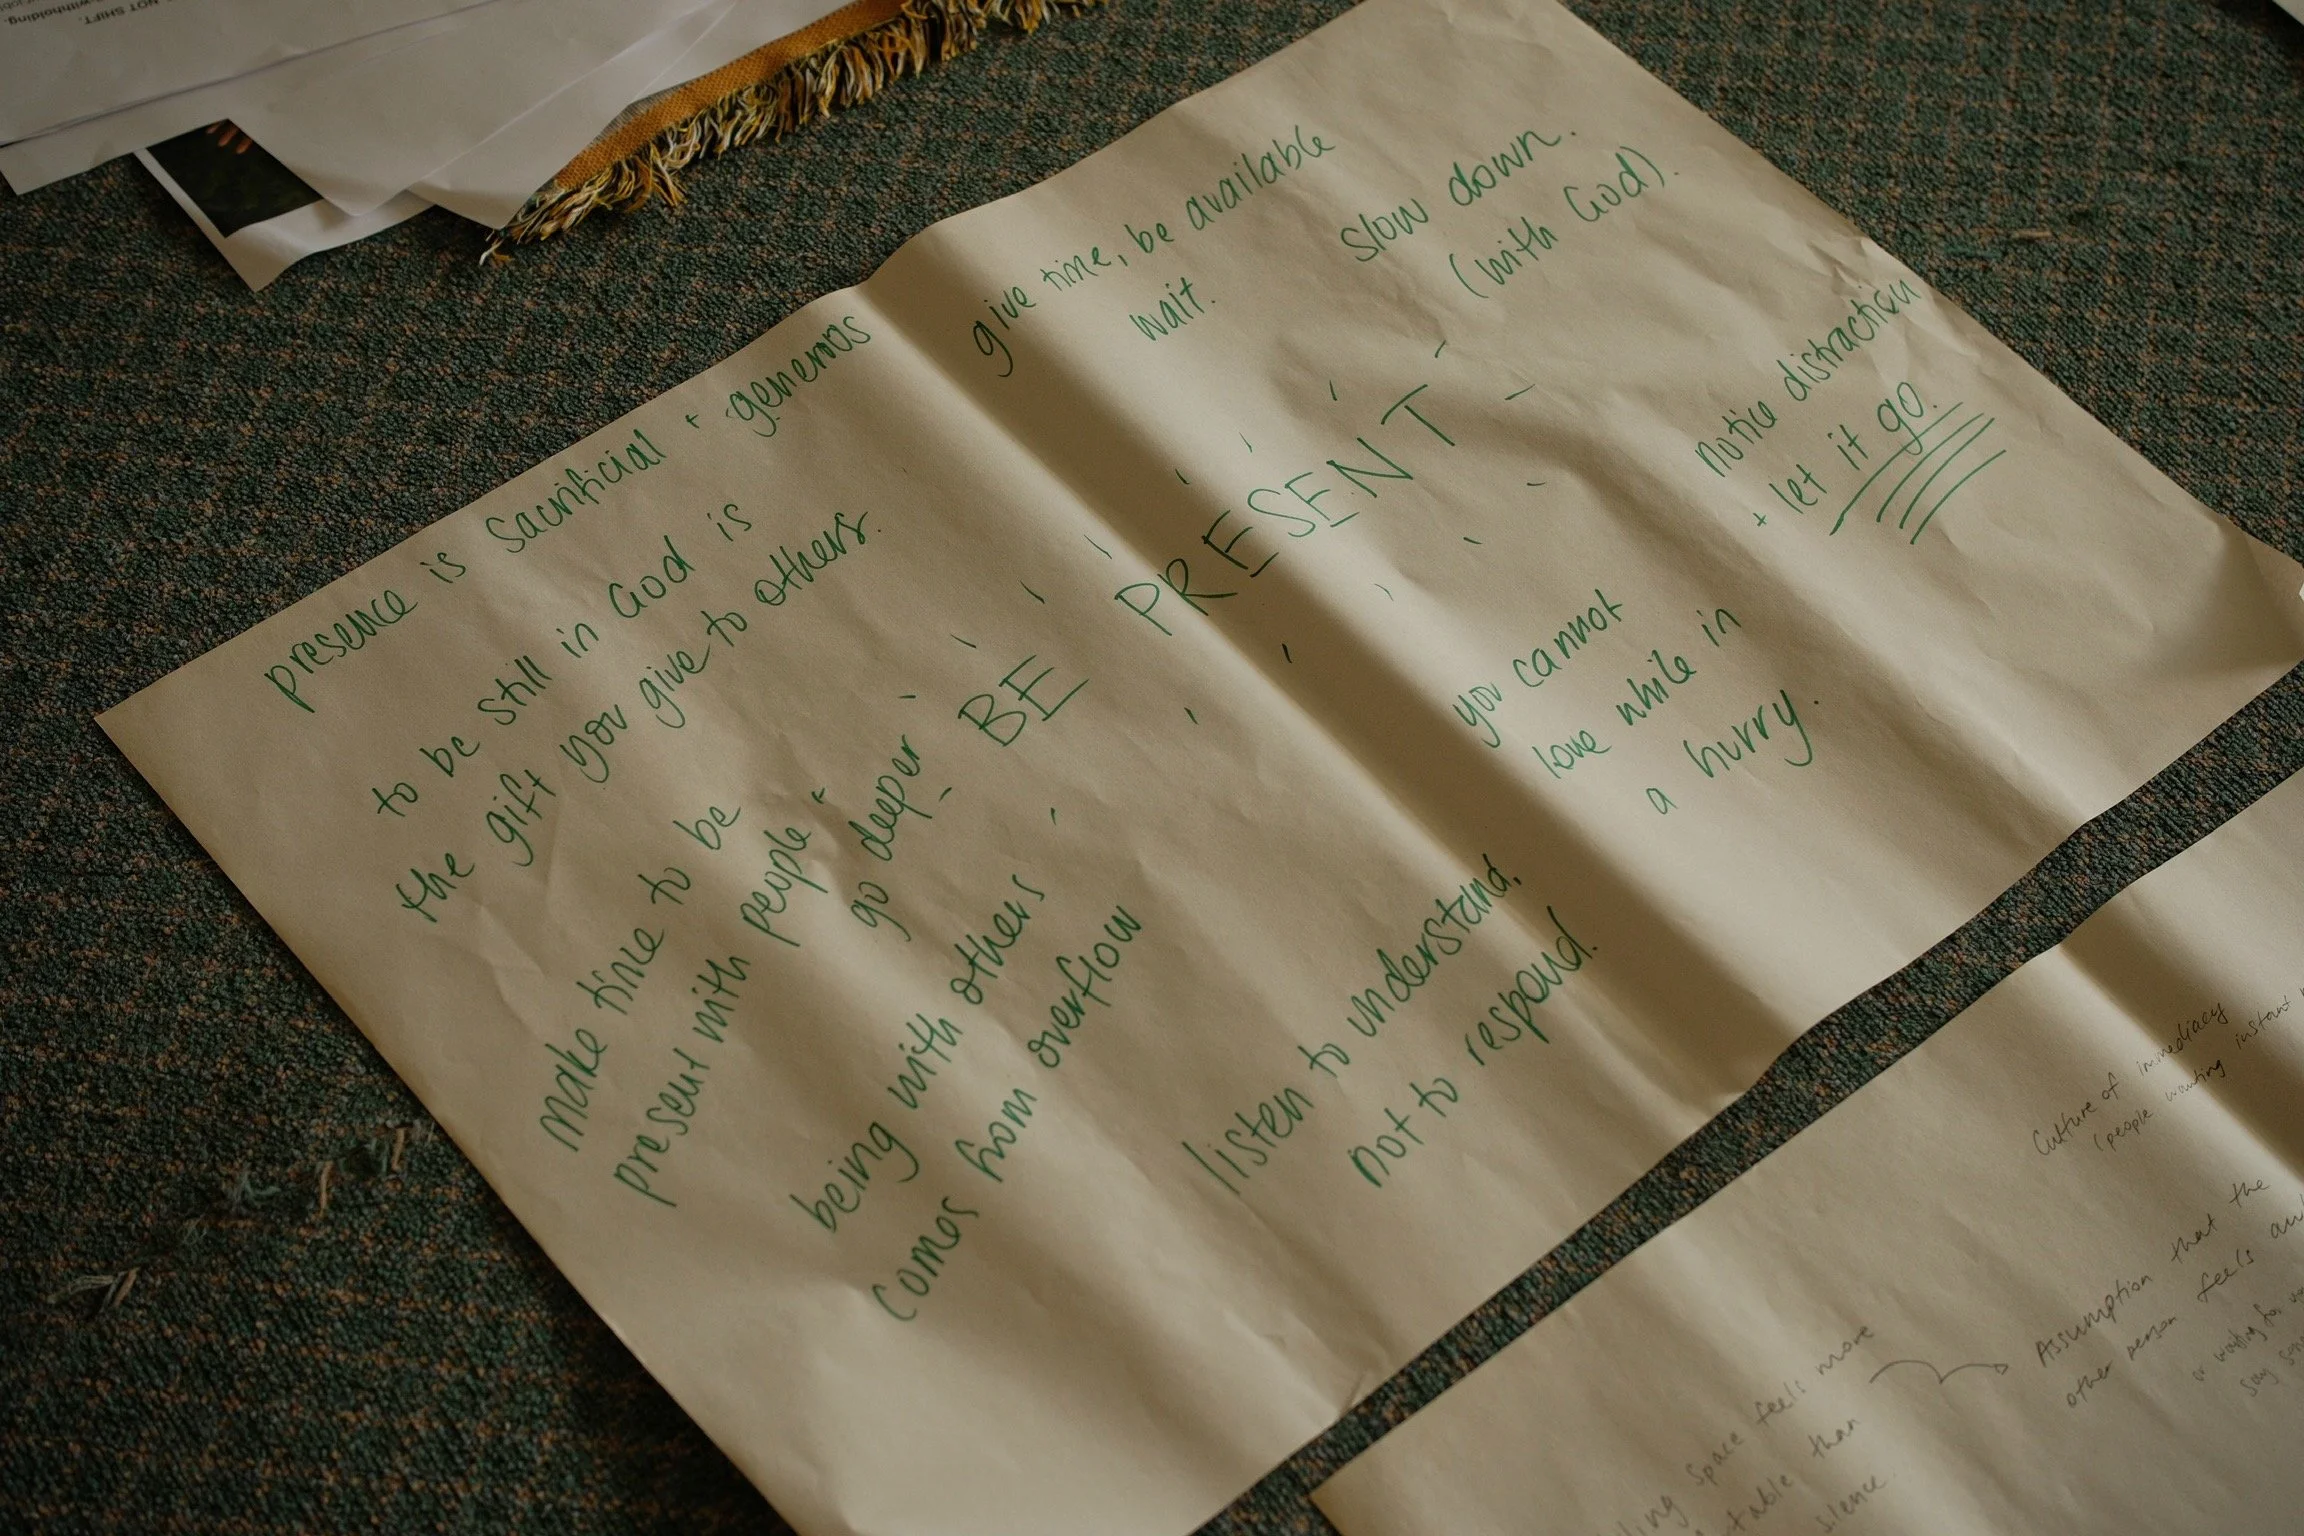 NOT SHIFT.
withholding.
presence is sacrificial + generous
give time, be available
wait.
slow down.
(with God).
to be still in God is
the gift you give to others.
BE PRESENT
notice distraction
+ let it go.
make time to be
present with people
"go deeper"
you cannot
love while in
a hurry.
being with others
comes from overflow
listen to understand,
not to respond.
Culture of immediacy
(people wanting instant
Assumption that the
other person feels
or waiting for
say
space feels more
than
silence.